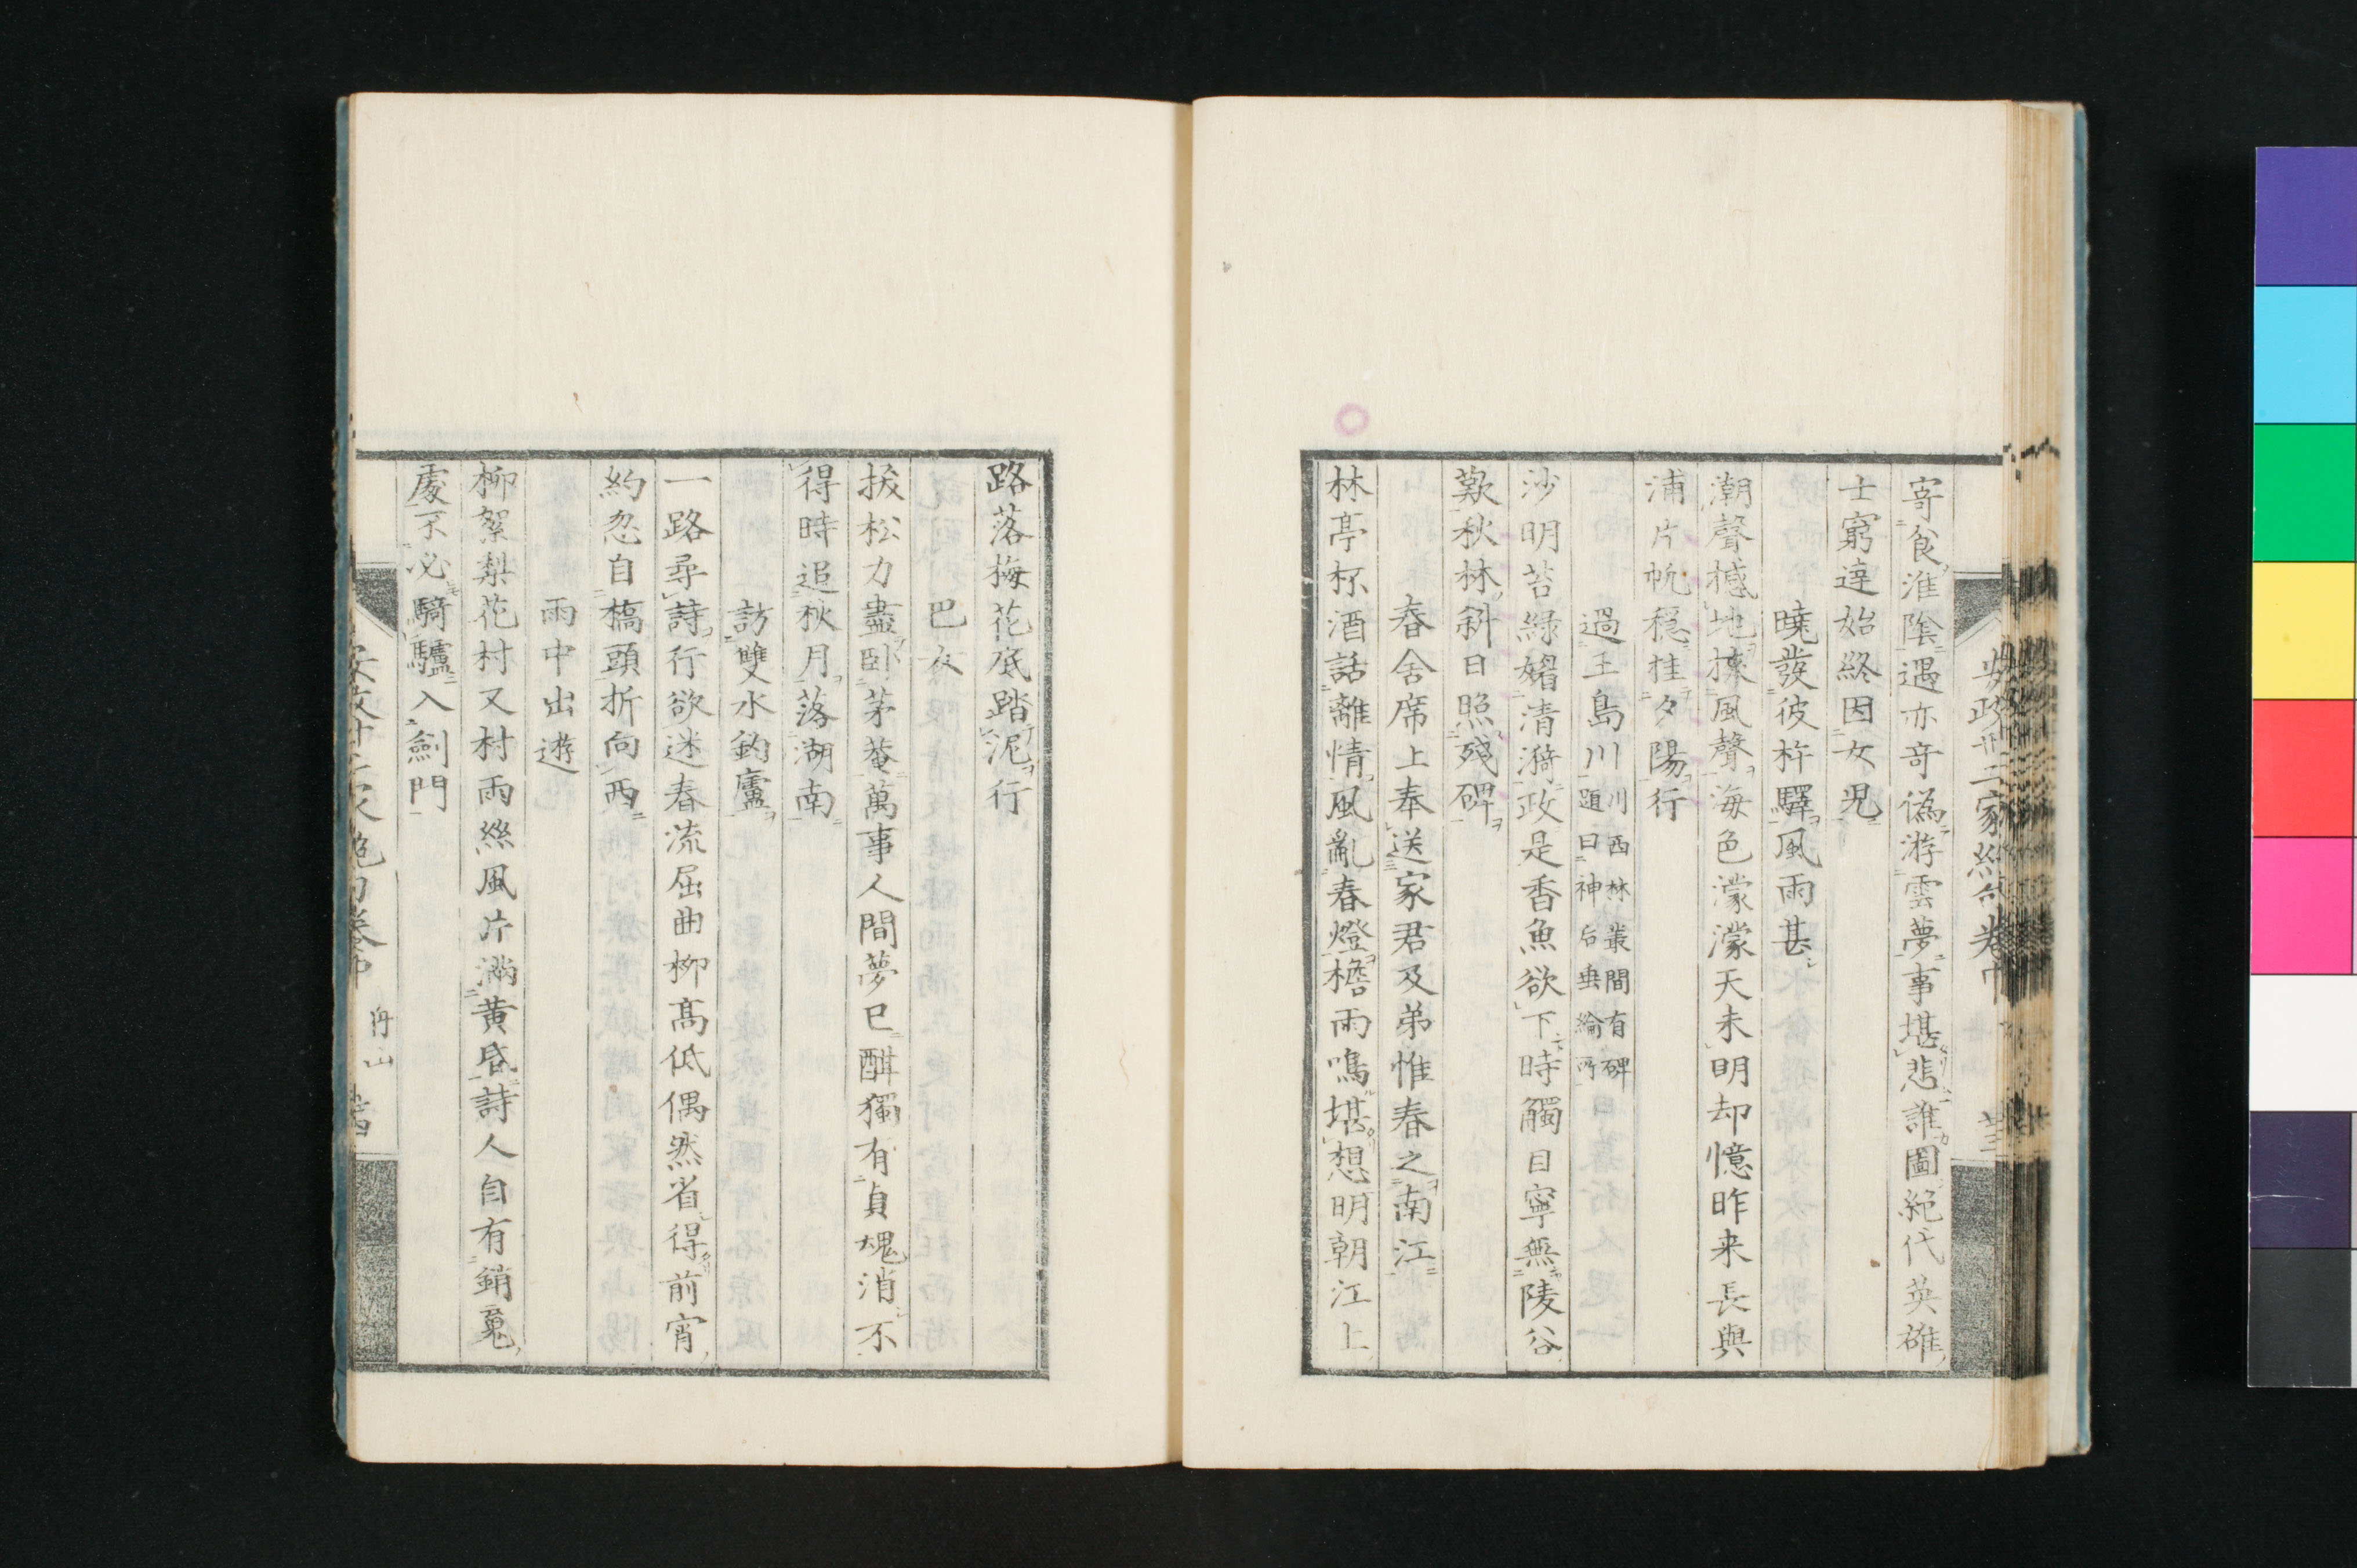 寄食淮陰遇亦奇偽游雲夢事堪悲誰圖絕代英雄
士窮達始終因女兒
曉發彼杵驛風雨甚
潮聲撼地擁風聲海色濛濛天未明却憶昨来長與
浦片帆穩挂夕陽行
過玉島川川西林叢間有碑題曰神后垂綸所
沙明苔綠媚清漪政是香魚欲下時觸目寧無陵谷
歎秋林斜日照殘碑
春舍席上奉送家君及弟惟春之南江
林亭杯酒話離情風亂春燈檐雨鳴堪想明朝江上
路落梅花底踏泥行
巴人
拔松力盡臥茅菴萬事人間夢已酣獨有貞魂消不
得時追秋月落湖南
訪雙水釣廬
一路尋詩行欲迷春流屈曲柳高低偶然省得前宵
約忽自橋頭折向西
雨中出遊
柳絮梨花村又村雨絲風片滿黃昏詩人自有銷魂
處不必騎驢入劍門